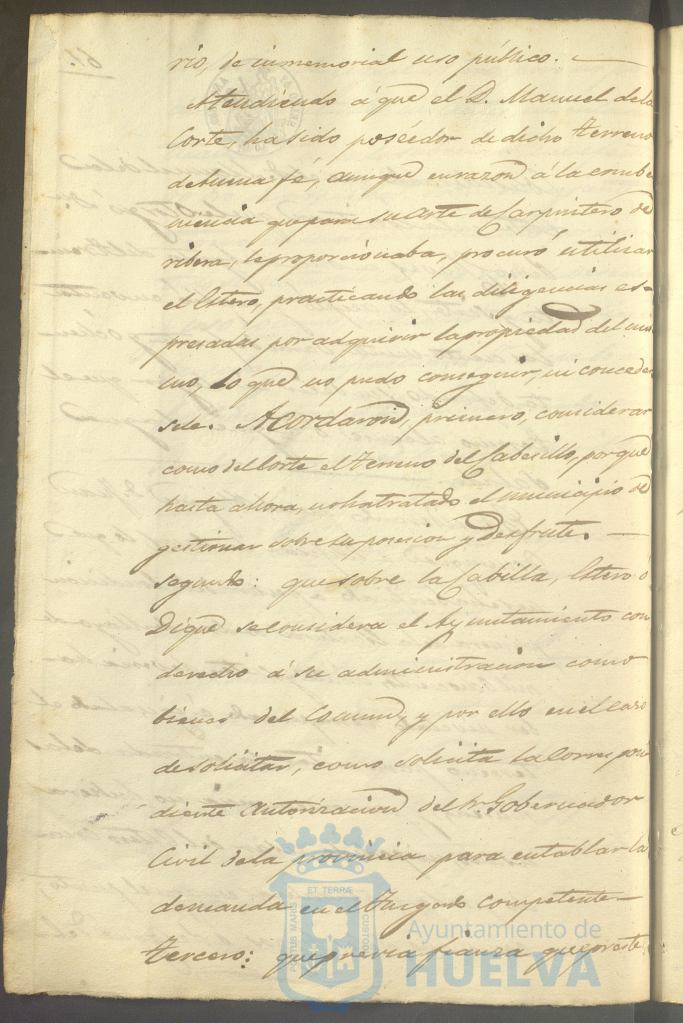 rio, de inmemorial uso público. —
Atendiendo á que el D. Manuel de la
Corte, ha sido poséedor de dicho terreno
de buena fé, aunque en razon á la conbe
niencia que para su arte de Carpintero de
ribera, le proporcionaba, procuró utilizar
el Estero, practicando las diligencias es-
presadas por adquirir la propiedad del mis
mo, lo que no pudo conseguir, ni conceder
sele. Acordaron, primero, considerar
como del Corte el terreno del Cabesillo, por que
hasta ahora, no ha tratado el municipio de
gestionar sobre su posesion y desfrute. —
segundo: que sobre la Cabilla, Estero ó
Dique se considera el Ayuntamiento con
derecho á su administracion como
bienes del Comun, y por ello en el caso
de solicitar, como solicita la Correspon
diente Autorizacion del Sr Gobernador
Civil de la provincia para entablar la
demanda en el Juzgado competente —
tercero: que previa fianza que preste
PORTUS MARIS ET TERRÆ CUSTODIA
Ayuntamiento de
HUELVA